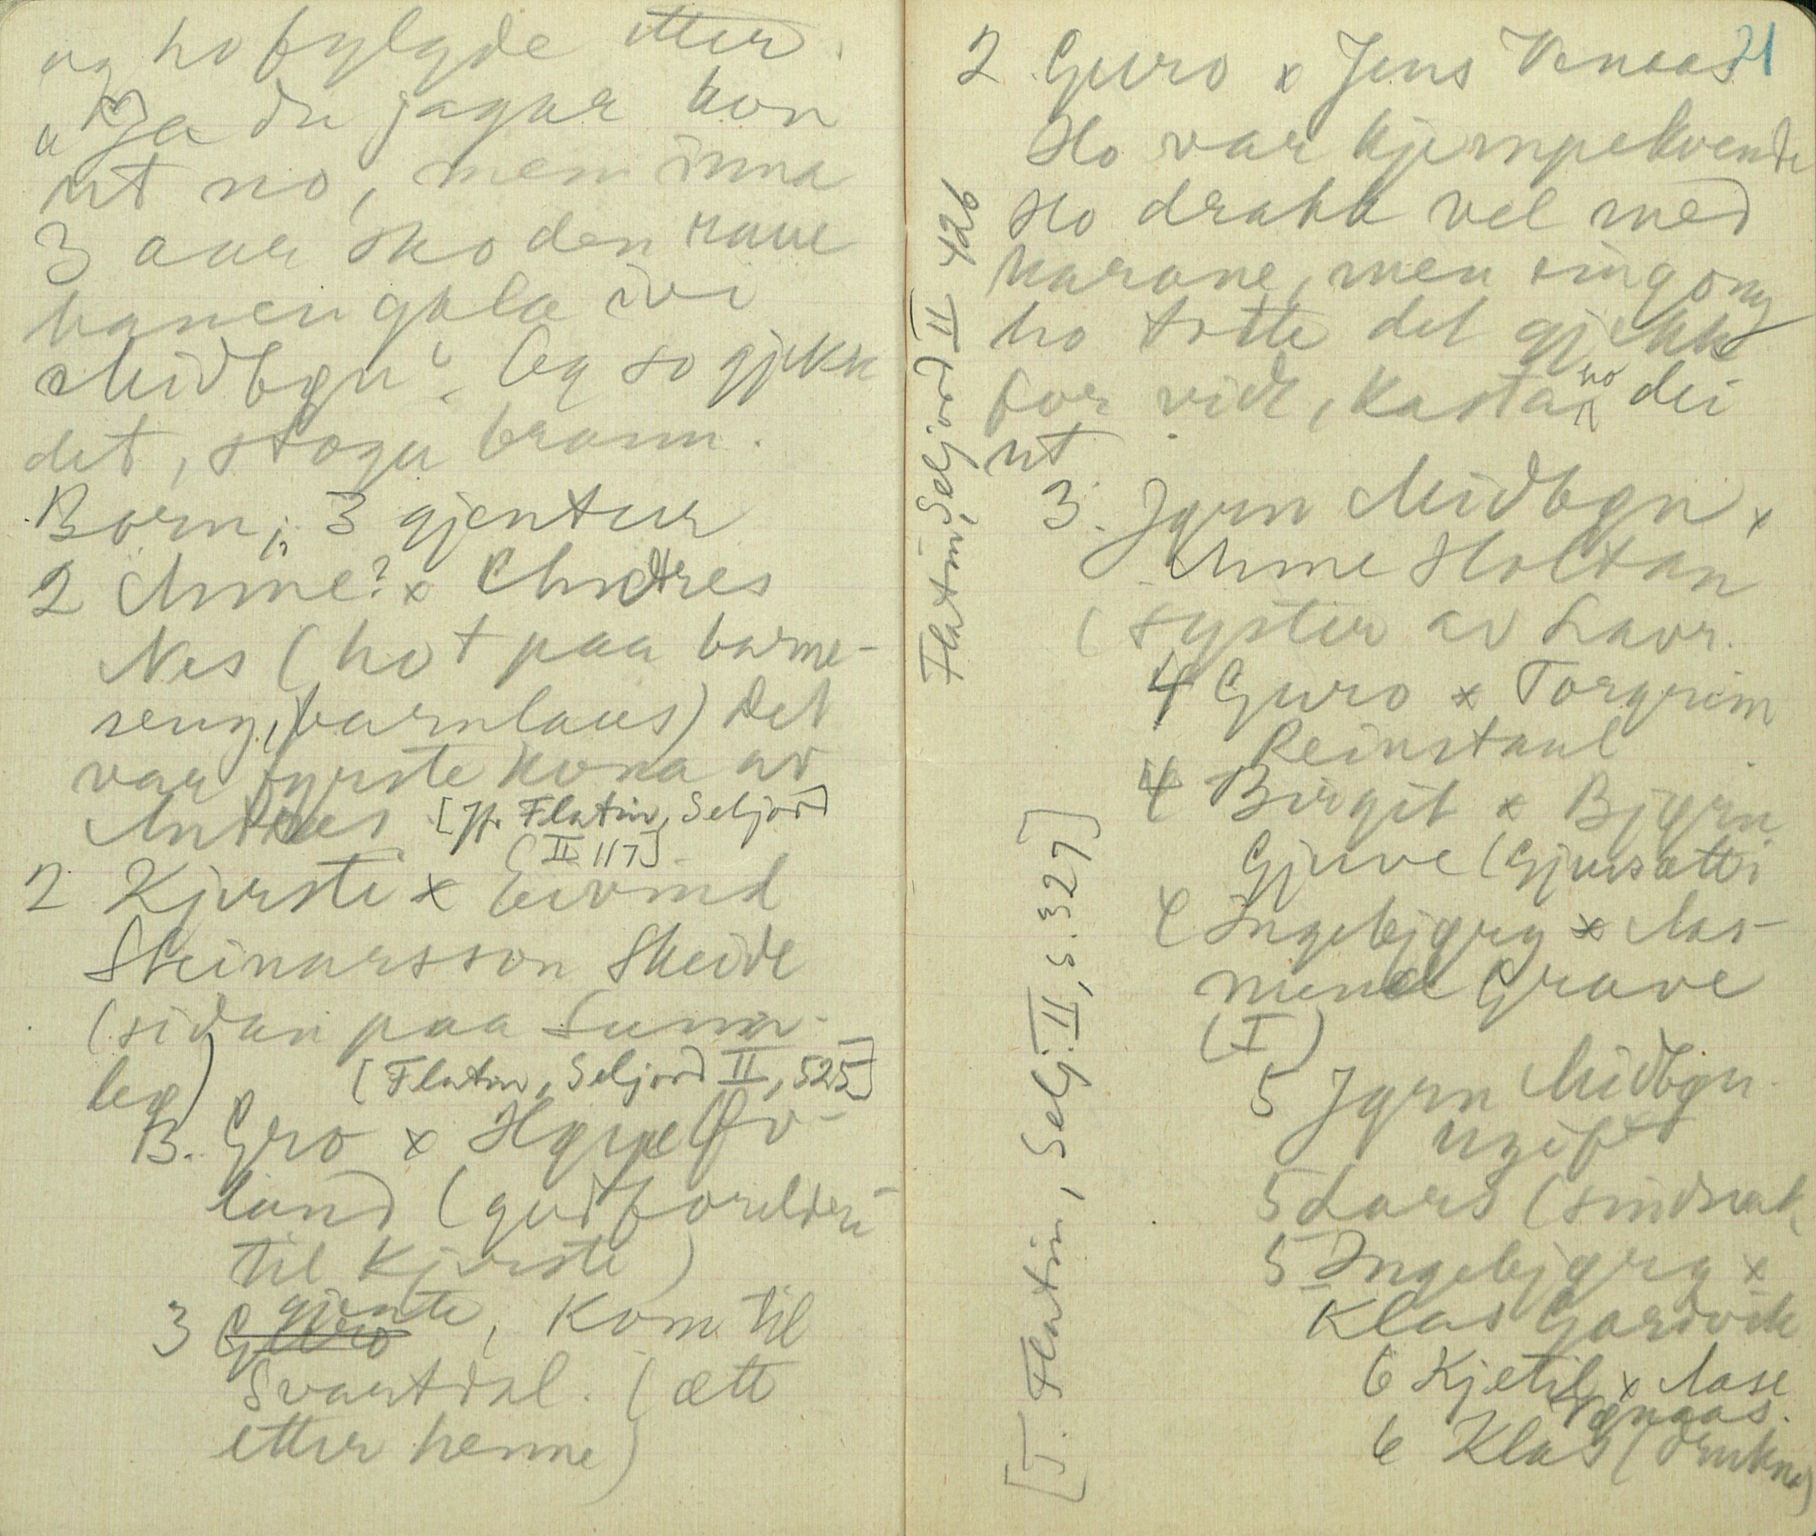 og ho fylgde etter.
"Ja du jagar kon
ut no, men inna
3 aar sko den raue
hanen gala ivi
Midbøn". Og so gjekk
det, stogu brann.
Born; 3 gjentur
2 Anne? x Andres
Nes (hot paa barne-
seng, barnlaus) Det
var fyrste kona av
Andres [jf. Flatin, Seljord
II 117]
2 Kjersti x Eivind
Steinarsson Skeide
(sidan paa Sunn-
leg) [Flatin, Seljord II, 525]
3. Gro x
land (gudforeldri
til Kjersti)
3 gjente, kom til
Svartdal. (ætt
etter henne)
21
2 Guro x Jens Venaas
Ho var kjempekvende
Ho drakk vel med
karane, men eingong
ho totte det gjekk
for vidt, kasta ho dei
ut
Flatin, Seljord II 426
3. Jørn Midbøn x
Anne Holtan
(syster av Lavr.
4 Guro x Torgrim
Reinstaul
4 Birgit x Bjørn
Gjuve (Gjuvsætti
4 Ingebjørg x Aas-
mund Grave
(I)
5 Jørn Midbøn
ugift
5 Lars (sindssak
5 Ingebjørg x
Klas Gardvik
6 Kjetil x Aase
6 Klas (drukna)
[T. Flatin, Selj. II, s. 327]